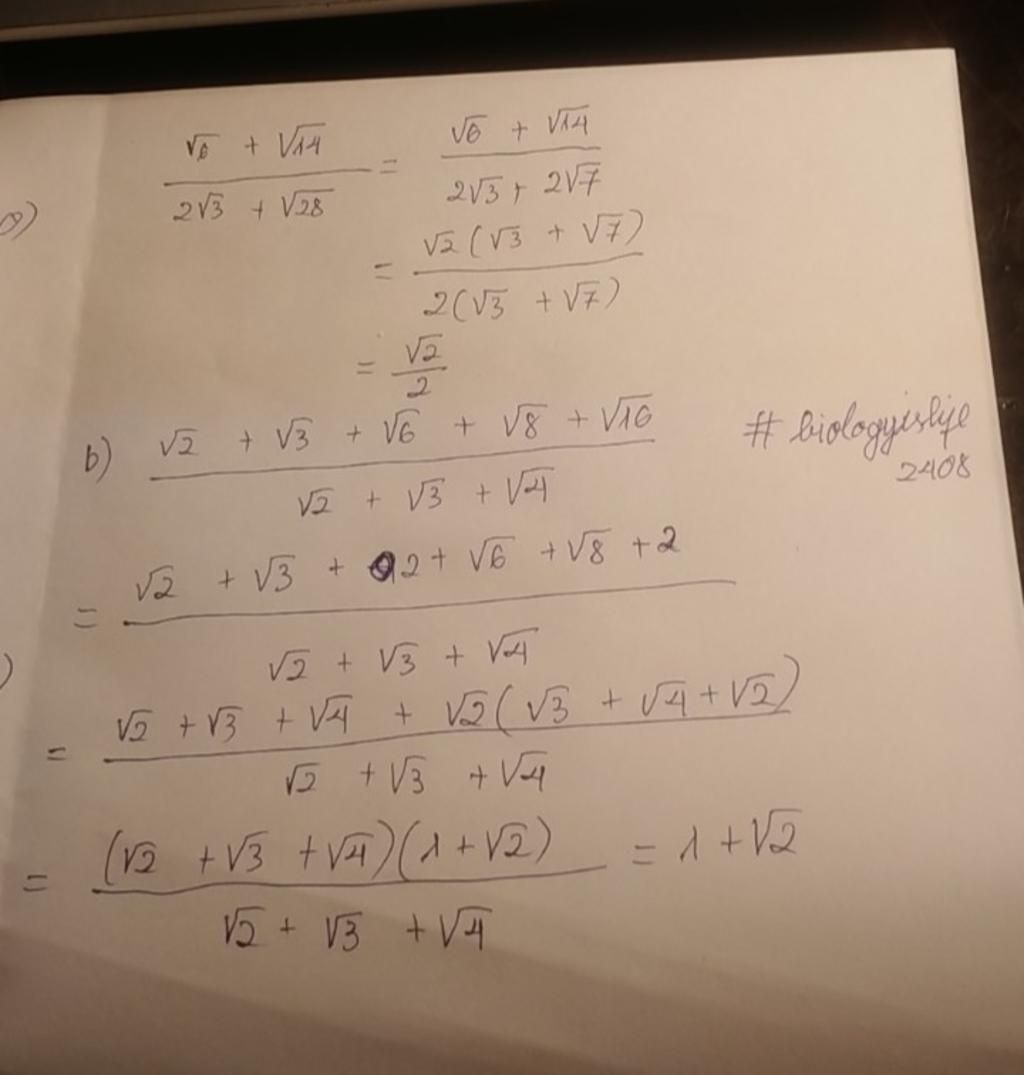 √6 + √14 / 2√3 + √28 = √6 + √14 / 2√3 + 2√7
= √2(√3 + √7) / 2(√3 + √7)
= √2 / 2
b) √2 + √3 + √6 + √8 + √16 / √2 + √3 + √4
#biologyislife
2408
= √2 + √3 + 2 + √6 + √8 + 2 / √2 + √3 + √4
)
= √2 + √3 + √4 + √2(√3 + √4 + √2) / √2 + √3 + √4
= (√2 + √3 + √4)(1 + √2) / √2 + √3 + √4 = 1 + √2